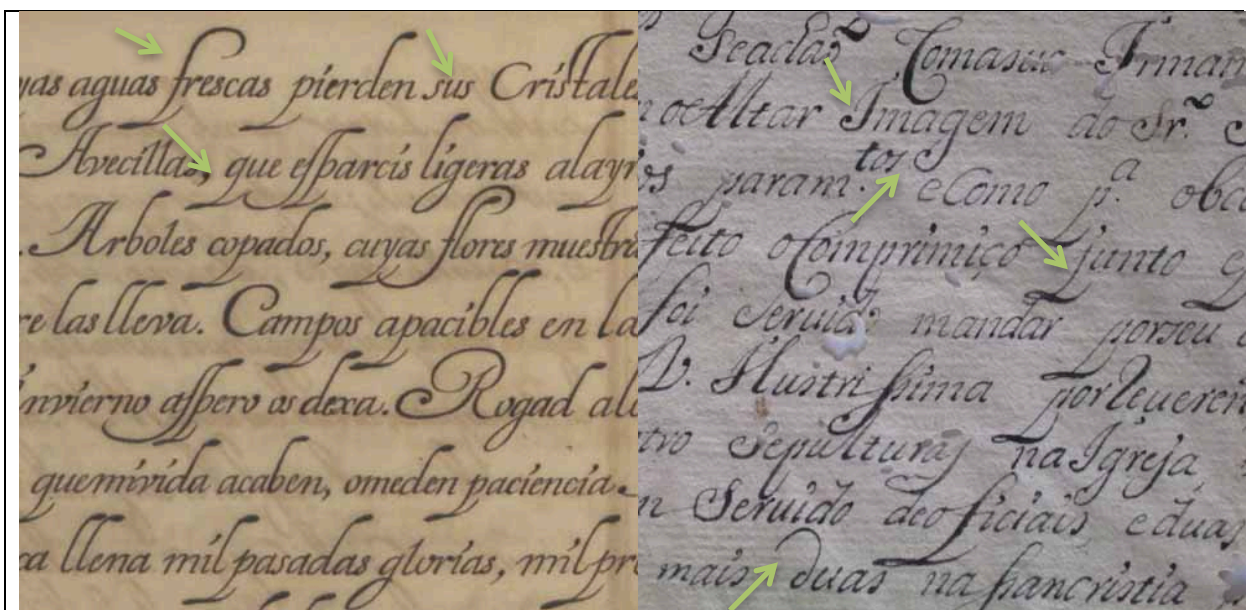 yas aguas frescas pierden sus Criſtale
Avecillas, que eſparcis ligeras alayr
. Arboles copados, cuyas flores mueſtr
re laslleva. Campos apacibles en la
nvierno aſpero os dexa. Rogad al
quemivida acaben, omeden paciencia.
a llena mil pasadas glorias, mil pr
Irman
oAltar Imagem do Sr.
param.tos eComo p.a
feito oComprimiço junto
foi Seruido mandar porseu
D. Illustrißima
Sepulturas naIgreja
Seruido deofficiais, eduas
mais duas na ſancristia